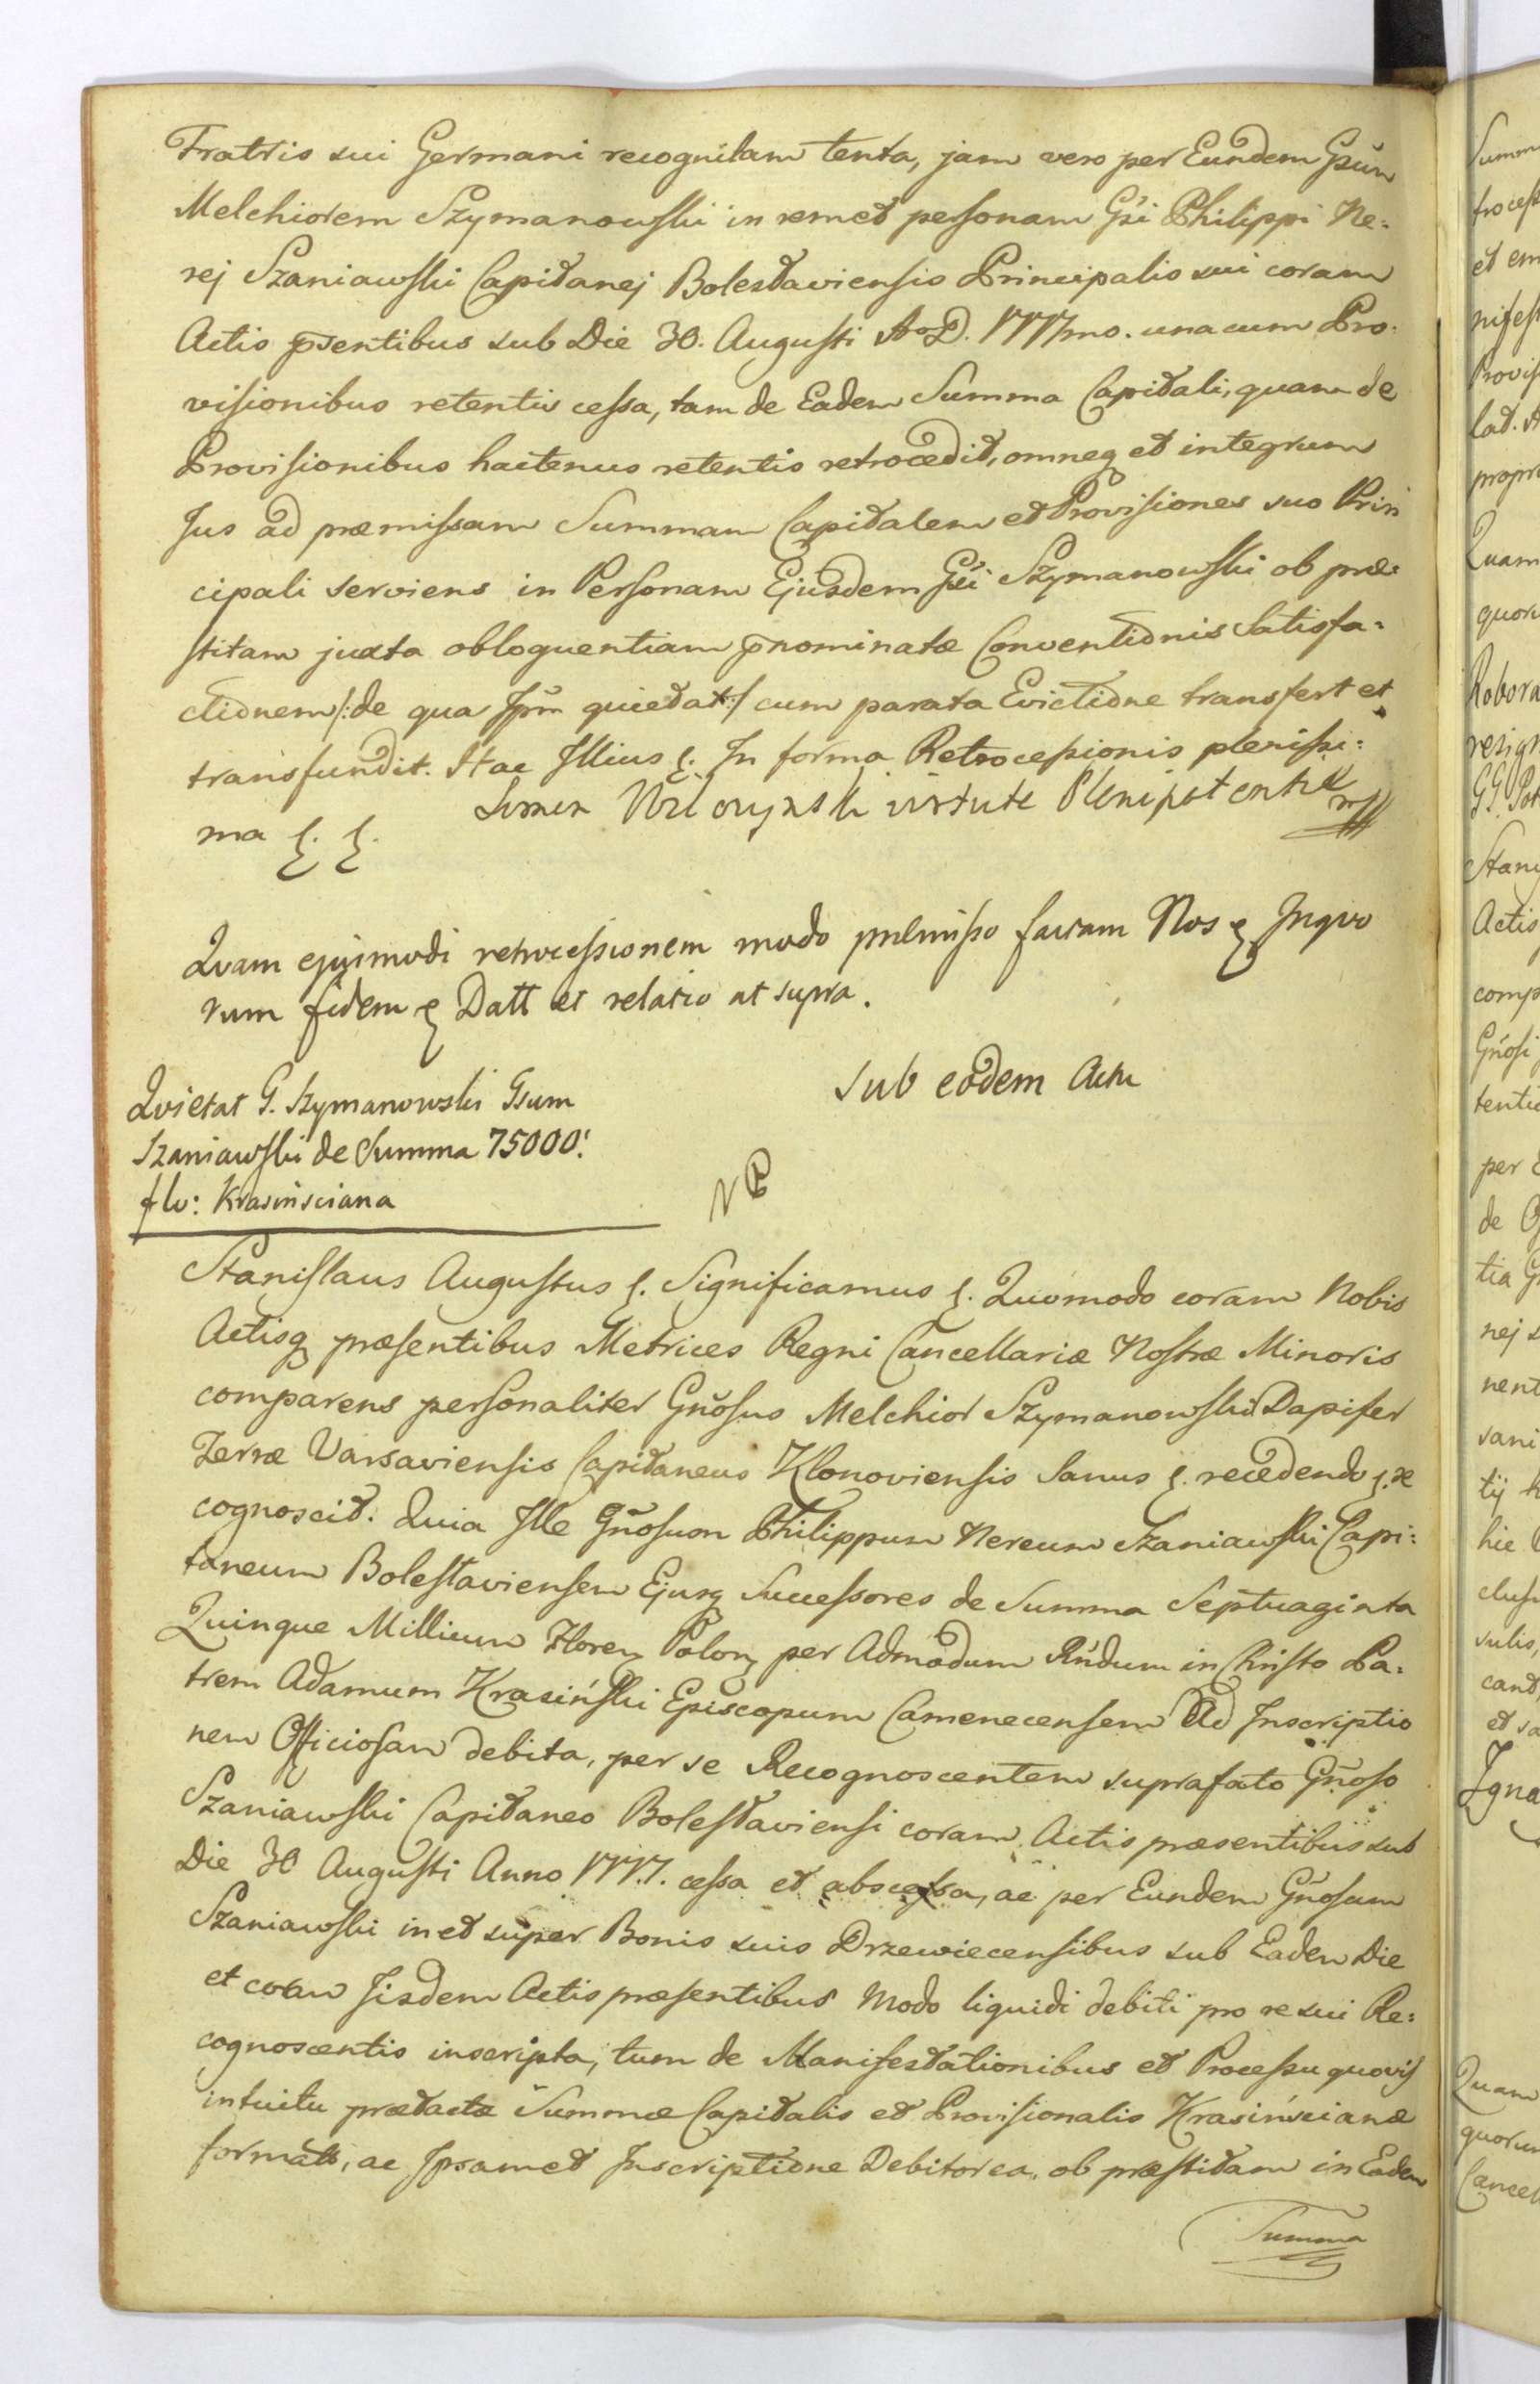 Fratris sui Germani recognitam tenta, jam vero per Eundem Gsum
Melchiorem Szymanowski in remet personam Gsi Philippi Ne:
rej Szaniawski Capitanej Boleslaviensis Principalis sui coram
Actis pñsentibus sub Die 30. Augusti Ao D. 1777mo. una cum Pro:
visionibus retentis cessa, tam de Eadem Summa Capitali, quam de
Provisionibus hactenus retentis retrocedit, omneq et integrum
Jus ad præmissam Summam Capitalem et Provisiones suo Prin
cipali serviens in Personam Ejusdem Gsi Szymanowski ob præ:
stitam juxta obloquentiam pnominatæ Conventionis Satisfa:
ctionem /: de qua Ipm quietat :/ cum parata Evictione transfert et
transfundit. Hac Illius &. In forma Retrocessionis plenissi:
ma &. &.
virtute Plenipotentiæ mpp
Quam ejusmodi retrocessionem modo præmisso factam Nos & Inquo
rum fidem & Datt et relatio ut supra.
Sub eodem Actu
Quietat G. Szymanowski Gsum
Szaniawski de Summa 75000.
flo: Krasinsciana
Stanislaus Augustus &. Significamus &. Quomodo coram Nobis
Actisq præsentibus Metrices Regni Cancellariæ Nostræ Minoris
comparens personaliter Gñosus Melchior Szymanowski Dapifer
Terræ Varsaviensis Capitaneus Klonoviensis Sanus &. recedendo &. re
cognoscit. Quia Ille Gñosum Philippum Nereum Szaniawski Capi:
taneum Boleslaviensem Ejusq Successores de Summa Septuaginta
Quinque Millium Floren Polon per Admodum Rñdum in Christo Pa:
trem Adamum Krasiński Episcopum Camenecensem Ad Inscriptio
nem Officiosam debita, per se Recognoscentem suprafato Gñoso
Szaniawski Capitaneo Boleslaviensi coram Actis præsentibus sub
Die 30 Augusti Anno 1777. cessa et abscessa, ac per Eundem Gñosum
Szaniawski in et super Bonis suis Drzewiecensibus sub Eadem Die
et coram Iisdem Actis præsentibus Modo liquidi debiti pro re sui Re:
cognoscentis inscripta, tum de Manifestationibus et Processu quovis
intuitu prætactæ Summæ Capitalis et Provisionalis Krasinscianæ
formatis, ac Ipsamet Inscriptione Debitorea, ob præstitam in Eadem
Summa